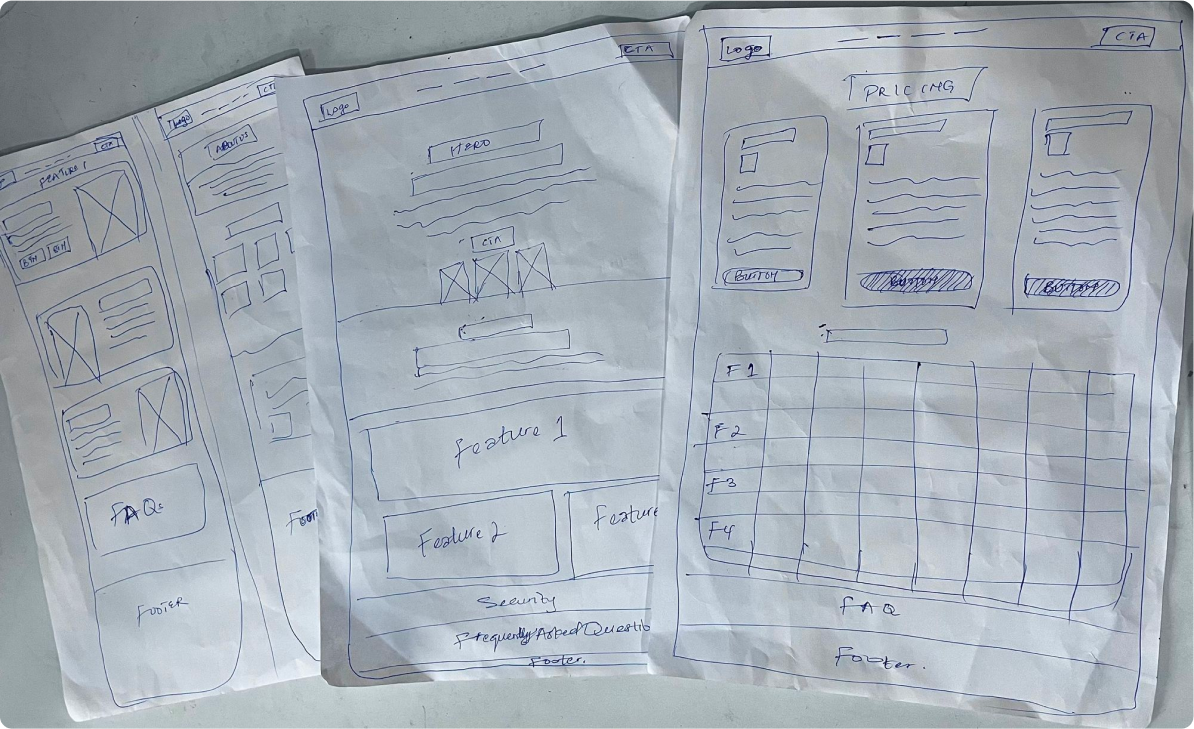 CTA
FEATURE 1
BTN
BTN
FAQs
FOOTER
Logo
ABOUT US
Logo
CTA
HERO
CTA
Feature 1
Feature 2
Feature
Security
Frequently Asked Questio
Footer.
Logo
CTA
PRICING
BUTTON
BUTTON
BUTTON
F1
F2
F3
F4
FAQ
Footer.